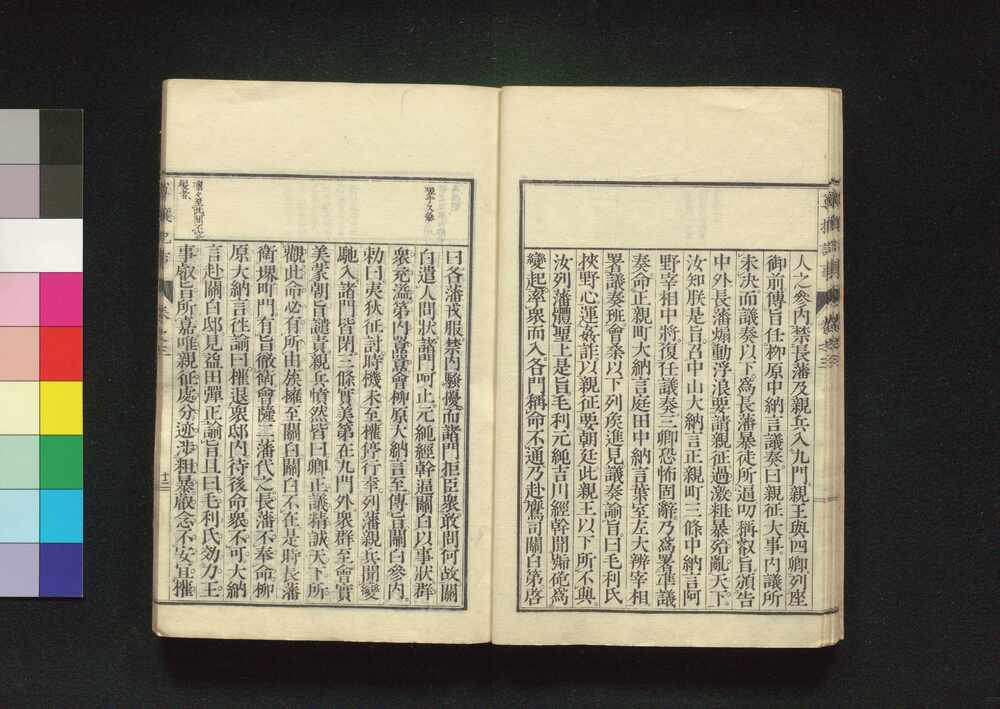 人之參內禁長藩及親兵入九門親王與四卿列座
御前傳旨任柳原中納言議奏曰親征大事內議所
未決而議奏以下爲長藩暴徒所逼叨稱叡旨頒告
中外長藩煽動浮浪要請親征過激粗暴殆亂天下
汝知朕是旨召中山大納言正親町三條中納言阿
野宰相中將復任議奏三卿恐怖固辭乃爲署準議
奏命正親町大納言庭田中納言葉室左大辨宰相
署議奏班會桑以下列矦進見議奏諭旨曰毛利氏
挾野心運姦詐以親征要朝廷此親王以下所不與
汝列藩體聖上是旨毛利元純吉川經幹聞號砲爲
變起率衆而入各門稱命不通乃赴鷹司關白第啓
曰各藩戎服禁內騷擾而諸門拒臣衆敢問何故關
白遣人問狀諸門呵止元純經幹逼關白以事狀群
衆充溢第內囂囂會柳原大納言至傳旨關白參內
勅曰夷狄征討時機未至權停行幸列藩親兵聞變
馳入諸門皆閉三條實美第在九門外衆群至會實
美蒙朝旨譴責親兵憤然皆曰卿止議精誠天下所
觀此命必有所由簇擁至關白關白不在是時長藩
衛堺町門有旨徹衛會薩二藩代之長藩不奉命柳
原大納言徃諭曰摧退衆邸內待後命衆不可大納
言赴關白邸見益田彈正諭旨且曰毛利氏効力王
事叡旨所嘉唯親征處分迹渉粗暴嚴念不安宜權
十二